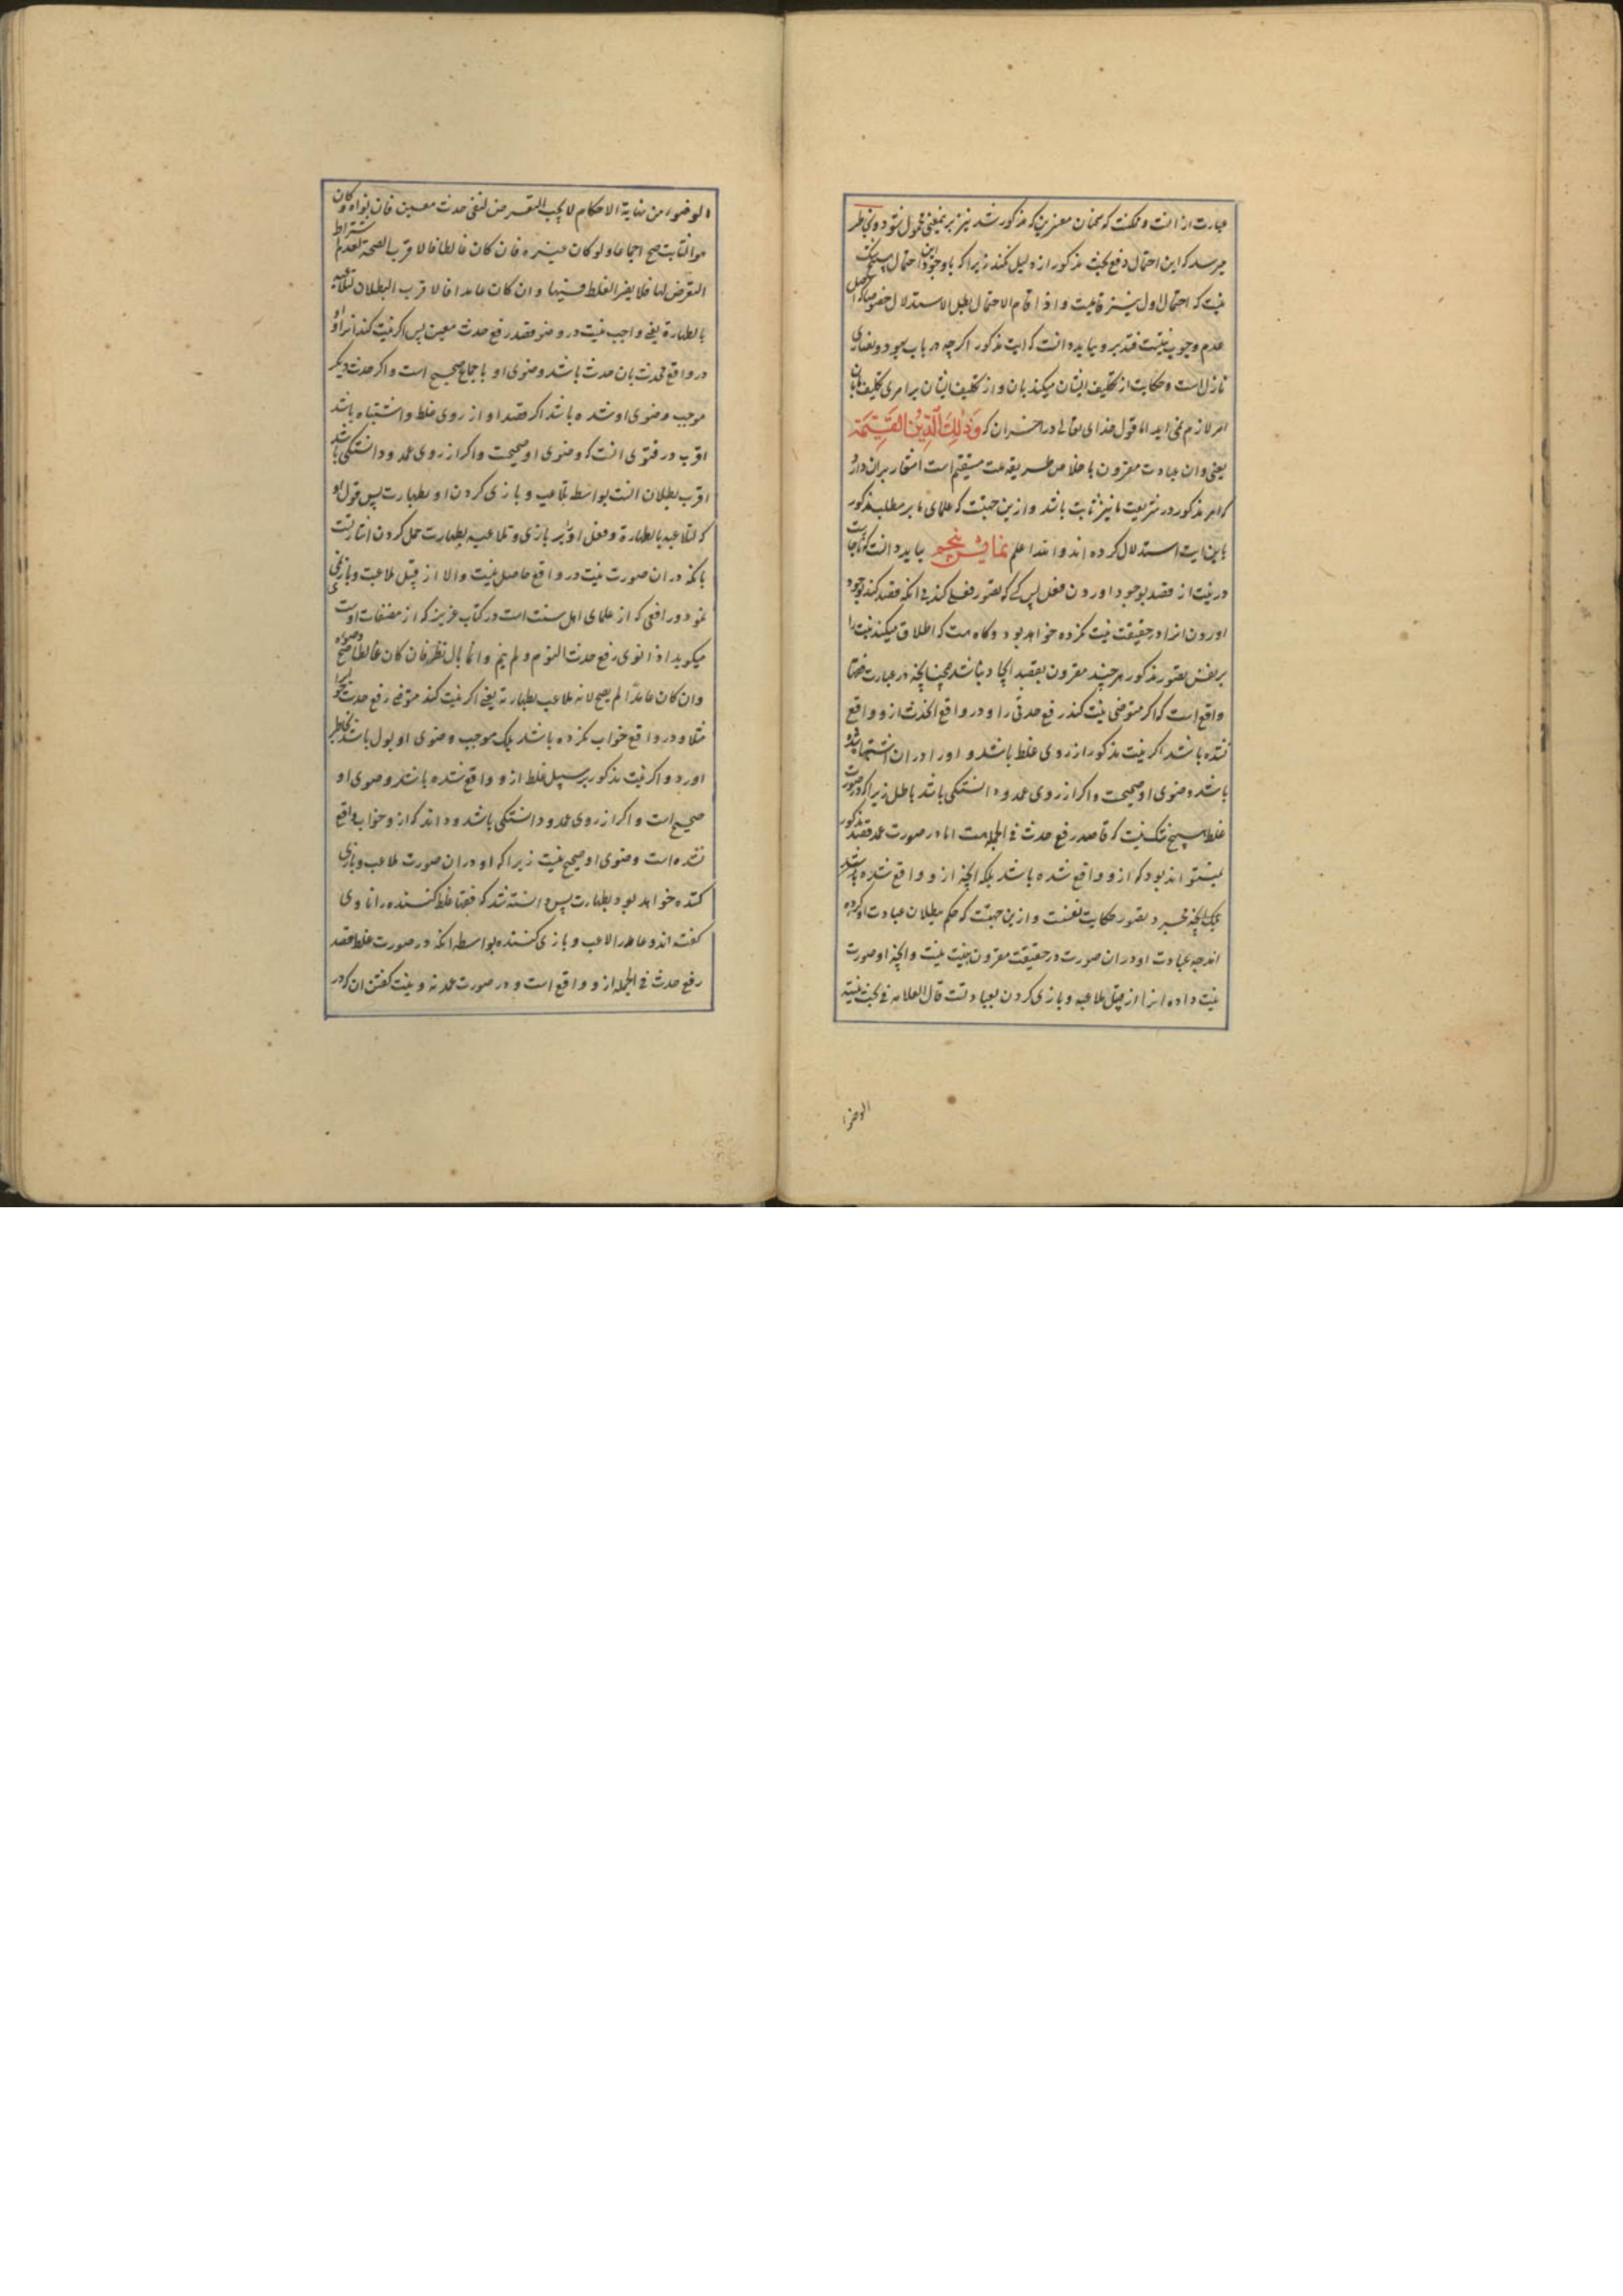 عبارت از انست و ممکنست که سخنان معنرین که مذکور شد نیز برین معنی محمول شود و بخاطر
میرسد که این احتمال دفع بحث مذکور از دلیل نکند زیرا که باوجود این احتمال هیچ شک
نیست که احتمال اول نیز قایمست و اذا قام الاحتمال بطل الاستدلال خصوصا که اصل
عدم وجوب نیتست فتدبر و بباید دانست که ایت مذکور اگرچه در باب یهود و نصاری
نازل است و حکایت از تکلیف ایشان میکند بان و از تکلیف ایشان برامری تکلیف ما بان
امر لازم نمی اید اما قول خدای تعالی در اخر ان که وَذٰلِكَ الدِّينُ القَيِّمَة
یعنی و ان عبادت مقرون باخلاص طریقه ملت مستقیم است اشعار بران دارد
که امر مذکور در شریعت ما نیز ثابت باشد و ازین جهتست که علمای ما بر مطلب مذکور
باین ایت استدلال کرده اند والله اعلم نمایش پنجم بباید دانست که ناچارست
در نیت از قصد بوجود اوردن فعل پس کسی که تصور فعلی کند بی انکه قصد کند بوجود
اوردن انرا در حقیقت نیت نکرده خواهد بود و گاه هست که اطلاق میکند نیت را
بر نفس تصور مذکور هرچند مقرون بقصد ایجاد نباشد همچنانچه در عبارت فقها
واقع است که اگر متوضی نیت کند رفع حدثی را و در واقع ان حدث ازو واقع
نشده باشد اگر نیت مذکور از روی غلط باشد و او را دران اشتباه شده
باشد وضوی او صحیحست و اگر از روی عمد و دانستگی باشد باطل زیرا که در صورت
غلط هیچ شک نیست که قاصد رفع حدث فی الجمله هست اما در صورت عمد قصد مذکور
نمیتواند بود که ازو واقع شده باشد بلکه انچه ازو واقع شده باشد
بلکه انچه مجرد تصور حکایت نفسست و ازین جهتست که حکم ببطلان عبادت او کرده
اند چه عبادت او دران صورت در حقیقت مقرون بنیت نیست و انچه او صورت
نیت داده انرا از قبیل ملاعبه و بازی کردن بعبادتست قال العلامه فی بحث نیته
الوضوء
الوضوء من نهایة الاحکام لا یجب التعرض لنفی حدث معین فان نواه و کان
هو الثابت صح اجماعا ولو کان غیره فان کان غالطا فالاقرب الصحة لعدم اشتراط
التعرض لها فلا یضر الغلط فیها و ان کان عامدا فالاقرب البطلان لتلاعبه
بالطهارة یعنی واجب نیست در وضو قصد رفع حدث معین پس اگر نیت کند انرا و او
در واقع محدث بان حدث باشد وضوی او باجماع صحیح است و اگر حدث دیگر
موجب وضوی او شده باشد اگر قصد او از روی غلط و اشتباه باشد
اقرب در فتوی انست که وضوی او صحیحست و اگر از روی عمد و دانستگی باشد
اقرب بطلان انست بواسطه تلاعب و بازی کردن او بطهارت پس قول او
که لتلاعبه بالطهارة و فعل او را بر بازی و تلاعب بطهارت حمل کردن اشارتست
بانکه دران صورت نیت در واقع حاصل نیست والا از قبیل ملاعبت و بازی نمی
بود و رافعی که از علمای اهل سنت است در کتاب عزیز که از مصنفات اوست
میگوید اذا نوی رفع حدث النوم و لم ینم و انما بال نظر فان کان غالطا صح وضوءه
و ان کان عامدًا لم یصح لانه ملاعب بطهارته یعنی اگر نیت کند متوضی رفع حدث خواب را
مثلا و در واقع خواب نکرده باشد بلکه موجب وضوی او بول باشد بخاطر
اورد و اگر نیت مذکور بر سبیل غلط ازو واقع شده باشد وضوی او
صحیح است و اگر از روی عمد و دانستگی باشد و داند که ازو خواب واقع
نشده است وضوی او صحیح نیست زیرا که او دران صورت ملاعب و بازی
کننده خواهد بود بطهارت پس دانسته شد که فقها غلط کننده را ناوی
گفته اند و عامد را لاعب و بازی کننده بواسطه انکه در صورت غلط قصد
رفع حدث فی الجمله ازو واقع است و در صورت عمد نه و نیت گفتن ان که در